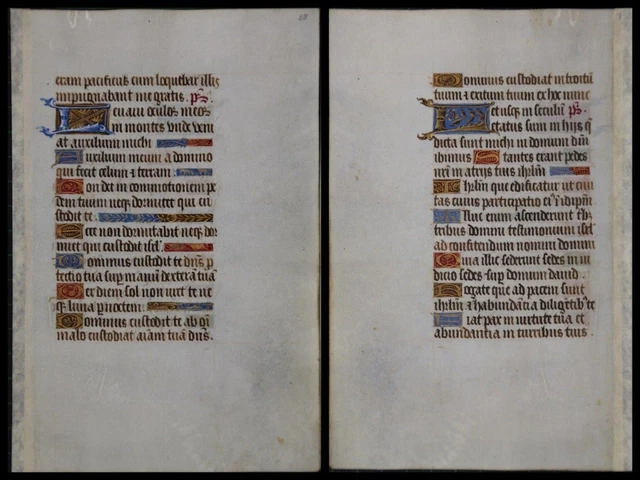 eram pacificus cum loquebar illis
impugnabant me gratis. ps.
Leuaui oculos meos
in montes vnde veni
at auxilium michi
Auxilium meum a domino
qui fecit celum z terram.
Non det in commotionem pe
dem tuum neqz dormitet qui cu
stodit te.
Ecce non dormitabit neqz dor
miet qui custodit isrl.
Dominus custodit te dns p
tectio tua sup manu dextera tua
Per diem sol non vret te ne
qz luna p noctem.
Dominus custodit te ab oi
malo custodiat aiam tua dns.
Dominus custodiat introitu
tuum z exitum tuum ex hoc nunc
et usqz in seculu. ps.
Letatus sum in hijs q
dicta sunt michi in domum dni
ibimus Stantes erant pedes
nri in atrijs tuis ihrlm
Ihrlm que edificatur ut ciui
tas cuius participatio eius
Illuc enim ascenderunt tri
tribus domini testimonium isrl
ad confitendum nomini domini
Quia illic sederunt sedes in iu
dicio sedes sup domum dauid.
Rogate que ad pacem sunt
ihrlm z habundancia diligetibz te
Fiat pax in uirtute tua et
abundantia in turribus tuis.